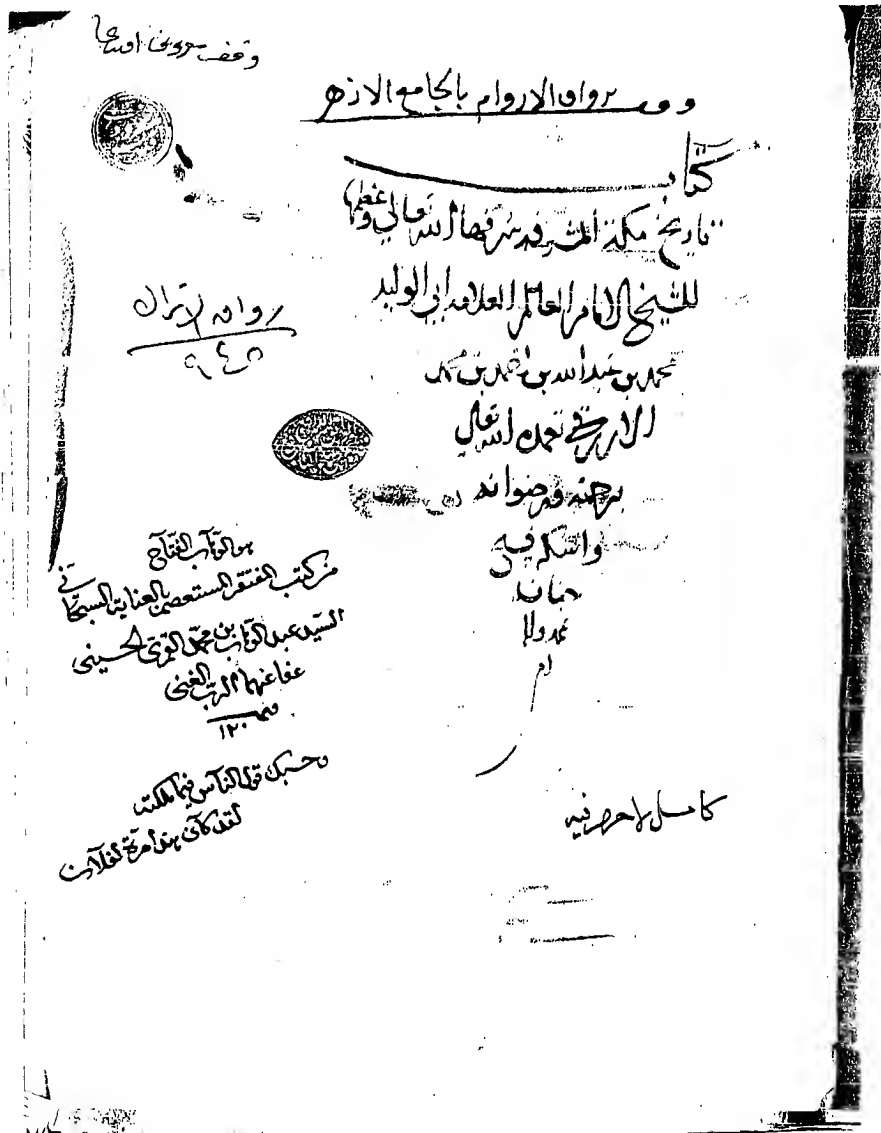 وقف
وقف برواق الاروام بالجامع الازهر
كتاب
تاريخ مكة المشرفه شرفها الله تعالى وعظمها
للشيخ الامام العالم العلامه ابي الوليد
محمد بن عبد الله بن احمد بن محمد
الازرقي تغمده الله تعالى
برحمته ورضوانه
واسكنه فسيح
جنانه
محمد وال
ام
رواق الاتراك
٩٤٥
هو الوهاب الفتاح
من كتب الفقير المستعصم بالعناية السبحاني
السيد عبد الوهاب بن محمد الحسيني
عفا عنهما الرب الغني
١٢٠
وحسبك قول الناس فيما ملكته
لقد كان هذا مرة لفلان
كامل لا خرم فيه